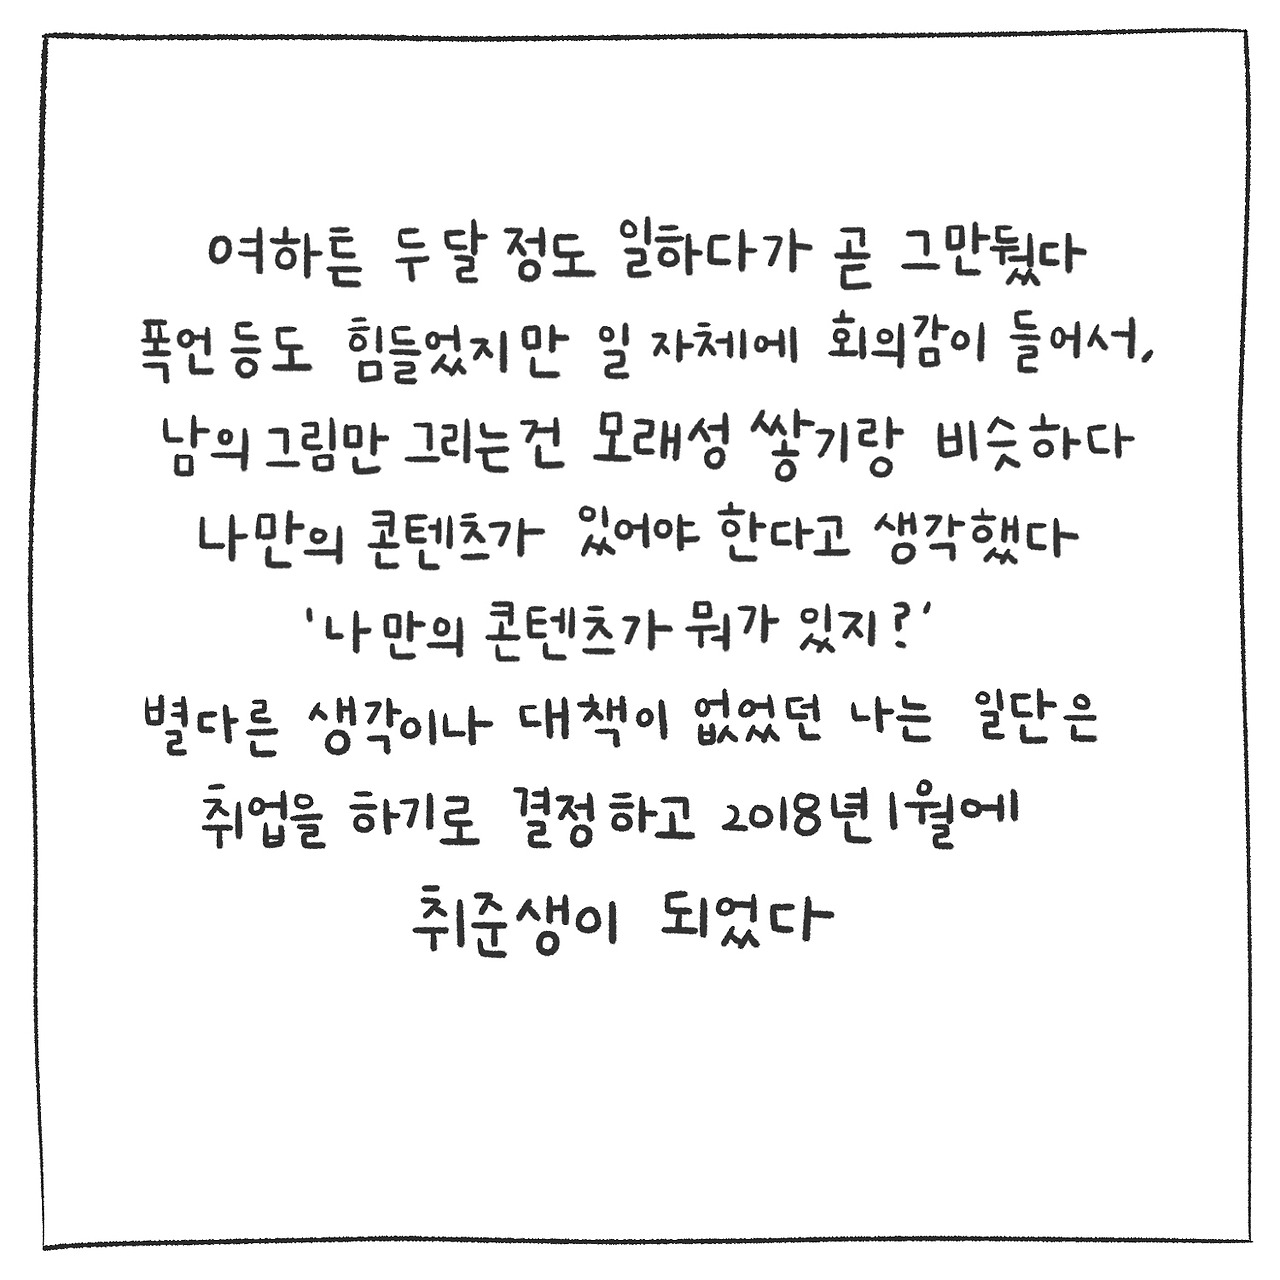 여하튼 두달 정도 일하다가 곧 그만뒀다
폭언 등도 힘들었지만 일 자체에 회의감이 들어서,
남의 그림만 그리는건 모래성 쌓기랑 비슷하다
나만의 콘텐츠가 있어야 한다고 생각했다
'나만의 콘텐츠가 뭐가 있지?'
별다른 생각이나 대책이 없었던 나는 일단은
취업을 하기로 결정하고 2018년 1월에
취준생이 되었다